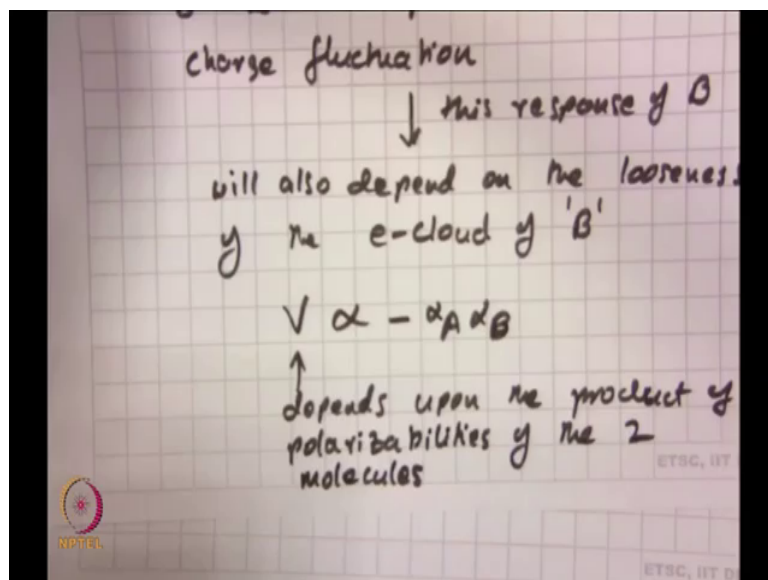 charge fluctuation
↓ this response of B
will also depend on the looseness
of the e-cloud of 'B'
V ∝ - αA αB
↑
depends upon the product of
polarizabilities of the 2
molecules
ETSC, IIT D
NPTEL
ETSC, IIT D